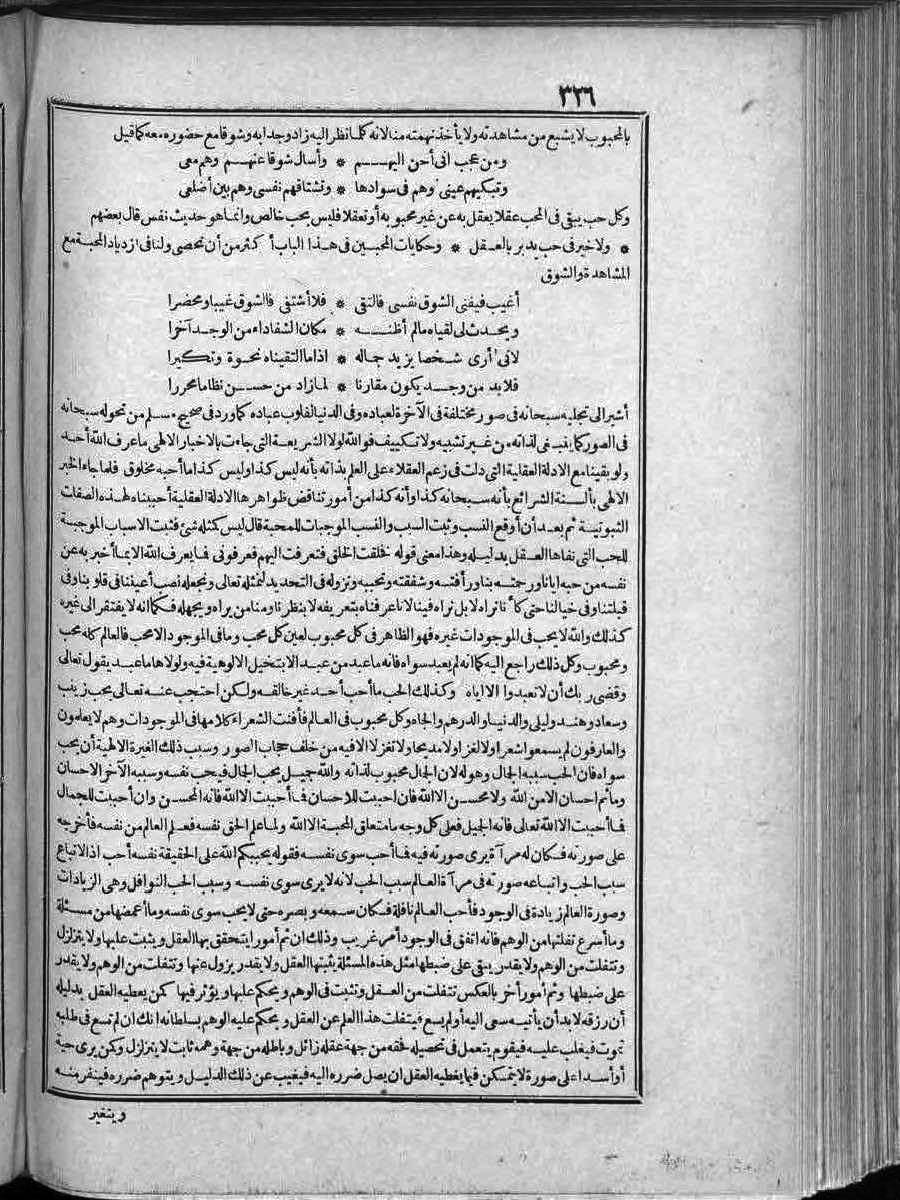 ٣٢٦
بالمحبوب لا يشبع من مشاهدته ولا يأخذ نهمته منه لانه كلما نظر اليه زاد وجدا به وشوقا مع حضوره معه كما قيل
ومن عجب انى أحن اليهـم * وأسأل شوقا عنهـم وهم معى
وتبكيهم عينى وهم فى سوادها * وتشتاقهم نفسى وهم بين أضلعى
وكل حب يبقى فى المحب عقلا يعقل به عن غير محبوبه أو تعقلا فليس بحب خالص وانما هو حديث نفس قال بعضهم
* ولا خير فى حب يدبر بالعـقل * وحكايات المحبين فى هـذا الباب أكثر من أن تحصى ولنا فى ازدياد المحبة مع
المشاهدة والشوق
أغيب فيفنى الشوق نفسى فالتقى * فلا أشتفى فالشوق غيبا ومحضرا
ويحـدث لى لقياه مالم أظنـه * مكان الشفا داء من الوجـد آخرا
لانى أرى شـخصا يزيد جماله * اذا ما التقيناه نخوة وتكـبرا
فلا بد من وجـد يكون مقارنا * لما زاد من حسـن نظاما محررا
أشير الى تجليه سبحانه فى صور مختلفة فى الآخرة لعباده وفى الدنيا لقلوب عباده كما ورد فى صحيح مسلم من تحوله سبحانه
فى الصور كما ينبغى لذاته من غير تشبيه ولا تكييف فوالله لولا الشريعة التى جاءت بالاخبار الالهى ما عرف الله أحد
ولو بقينا مع الادلة العقلية التى دلت فى زعم العقلاء على العلم بذاته بأنه ليس كذا وليس كذا ما أحبه مخلوق فلما جاء الخبر
الالهى بألسنة الشرائع بأنه سبحانه كذا وأنه كذا من أمور تناقض ظواهرها الادلة العقلية أحببناه لهذه الصفات
الثبوتية ثم بعـد أن أوقع النسب وثبت السبب والنسب الموجبات للمحبة قال ليس كمثله شئ فثبت الاسباب الموجبة
للحب التى نفاها العـقل بدليله وهذا معنى قوله فخلقت الخلق فتعرفت اليهم فعرفونى فما يعرف الله الا بما أخبر به عن
نفسه من حبه ايانا ورحمته بنا ورأفته وشفقته وتحببه ونزوله فى التحديد لنمثله تعالى ونجعله نصب أعيننا فى قلوبنا وفى
قبلتنا وفى خيالنا حتى كأنا نراه لا بل نراه فينا لانا عرفناه بتعريفه لا بنظرنا ومنا من يراه ويجهله فكما انه لا يفتقر الى غيره
كذلك والله لا يحب فى الموجودات غيره فهو الظاهر فى كل محبوب لعين كل محب وما فى الموجود الا محب فالعالم كله محب
ومحبوب وكل ذلك راجع اليه كما انه لم يعبد سواه فانه ما عبد من عبـد الا بتخيل الالوهية فيه ولولاها ما عبـد يقول تعالى
وقضى ربك أن لا تعبدوا الا اياه وكذلك الحب ما أحب أحـد غير خالقـه ولكن احتجب عنـه تعالى بحب زينب
وسعاد وهند وليلى والدنيا والدرهم والجاه وكل محبوب فى العالم فأفنت الشعراء كلامها فى الموجودات وهم لا يعلمون
والعارفون لم يسمعوا شعرا ولا لغزا ولا مديحا ولا تغزلا الا فيه من خلف حجاب الصور وسبب ذلك الغيرة الالهية أن يحب
سواه فان الحب سببه الجمال وهو له لان الجمال محبوب لذاته والله جميل يحب الجمال فيحب نفسه وسببه الآخر الاحسان
وما ثم احسان الا من الله ولا محسن الا الله فان احببت للاحسان فما أحببت الا الله فانه المحسن وان أحببت للجمال
فما أحببت الا الله تعالى فانه الجميل فعلى كل وجه ما متعلق المحبة الا الله ولما علم الحق نفسه فعـلم العالم من نفسه فأخرجه
على صورته فكان له مرآة يرى صورته فيه فما أحب سوى نفسـه فقوله يحببكم الله على الحقيقة نفسه أحب اذ الاتباع
سبب الحب واتباعه صورته فى مرآة العالم سبب الحب لانه لا يرى سوى نفسه وسبب الحب النوافل وهى الزيادات
وصورة العالم زيادة فى الوجود فأحب العالم نافلة فكان سمعه وبصره حتى لا يحب سوى نفسه وما أغمضها من مسئلة
وما أسرع تفلتها من الوهم فانه اتفق فى الوجود أمر غريب وذلك ان ثم أمورا يتحقق بها العقل ويثبت عليها ولا يتزلزل
وتتفلت من الوهم ولا يقدر يبقى على ضبطها مثل هذه المسئلة يثبتها العقل ولا يقدر يزول عنها وتتفلت من الوهم ولا يقدر
على ضبطها وثم أمور أخر بالعكس تتفلت من العـقل وتثبت فى الوهم ويحكم عليها ويؤثر فيها كمن يعطيه العقل بدليله
أن رزقه لا بد أن يأتيـه سعى اليه أو لم يسع فيتفلت هذا العلم عن العقل ويحكم عليه الوهم بسلطانه انك ان لم تسع فى طلبه
تموت فيغلب عليـه فيقوم يتعمل فى تحصيله فحقه من جهة عقله زائل وباطله من جهة وهمه ثابت لا يتزلزل وكمن يرى حية
أو أسـدا على صورة لا يتمـكن فيما يعطيه العقل ان يصل ضرره اليه فيغيب عن ذلك الدليـل ويتوهم ضرره فينفر منـه
ويتغير